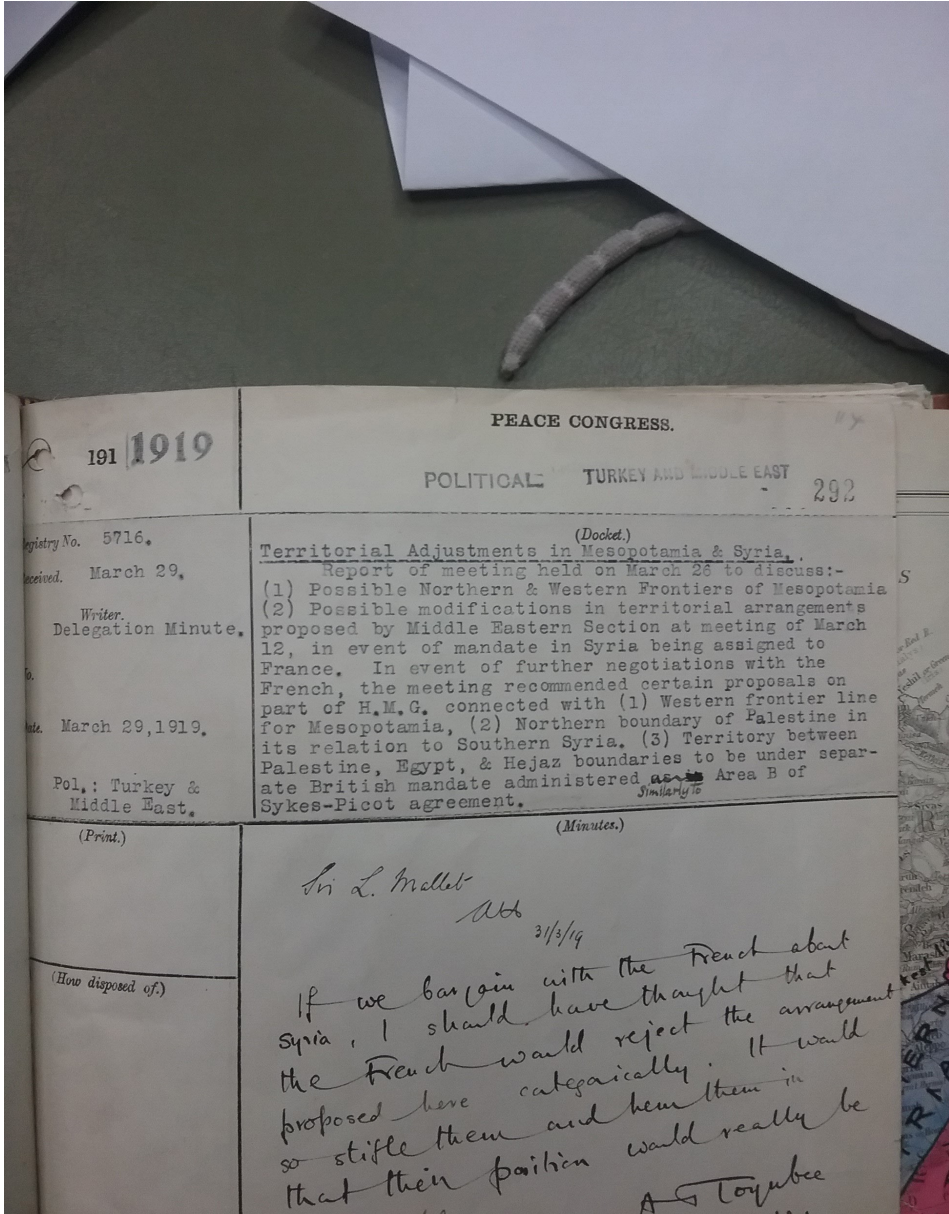 PEACE CONGRESS.
191 1919
POLITICAL TURKEY AND MIDDLE EAST
292
(Docket.)
egistry No. 5716.
eceived. March 29.
Writer.
Delegation Minute.
o.
ate. March 29,1919.
Pol.: Turkey &
Middle East.
Territorial Adjustments in Mesopotamia & Syria.
Report of meeting held on March 26 to discuss:-
(1) Possible Northern & Western Frontiers of Mesopotamia
(2) Possible modifications in territorial arrangements
proposed by Middle Eastern Section at meeting of March
12, in event of mandate in Syria being assigned to
France. In event of further negotiations with the
French, the meeting recommended certain proposals on
part of H.M.G. connected with (1) Western frontier line
for Mesopotamia, (2) Northern boundary of Palestine in
its relation to Southern Syria. (3) Territory between
Palestine, Egypt, & Hejaz boundaries to be under separ-
ate British mandate administered Area B of
Similarly to
Sykes-Picot agreement.
(Print.)
(How disposed of.)
(Minutes.)
Sir L. Mallet
31/3/19
If we bargain with the French about
Syria, I should have thought that
the French would reject the arrangement
proposed here categorically. It would
so stifle them and hem them in
that their position would really be
A J Toynbee